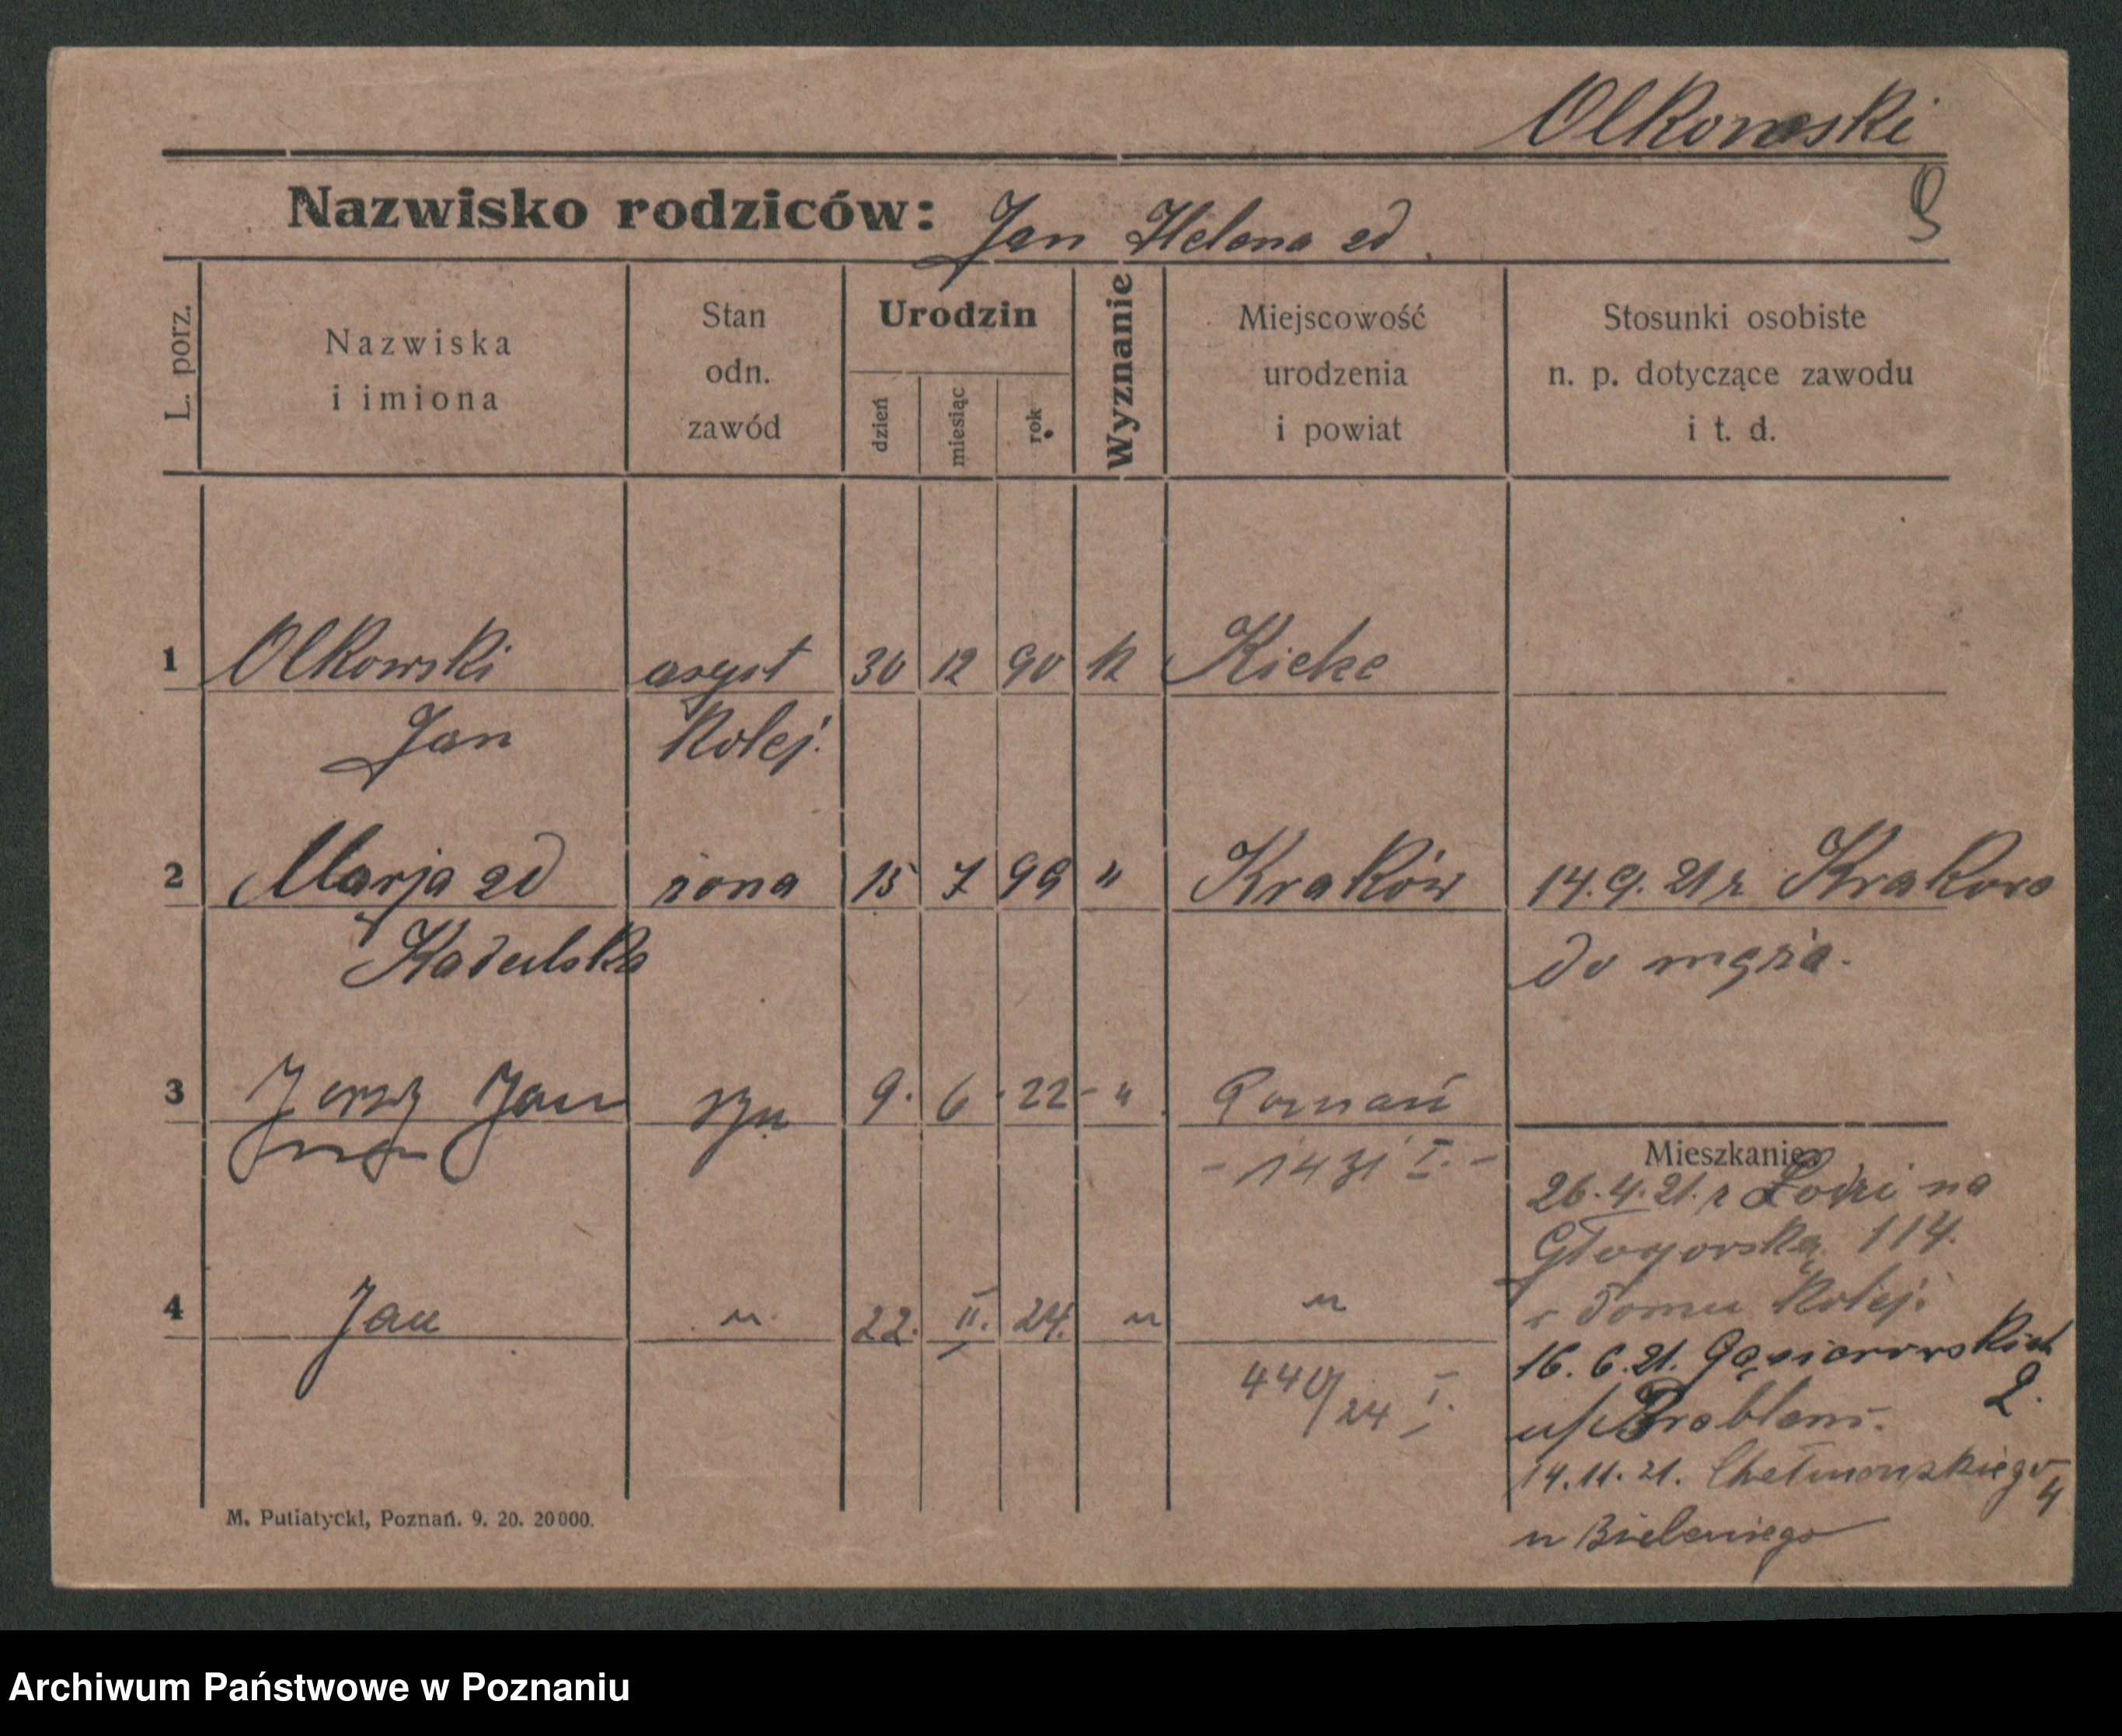 Olkowski
Nazwisko rodziców: Jan Helena zd
L. porz.
Nazwiska
i imiona
Stan
odn.
zawód
Urodzin
dzień
miesiąc
rok
Wyznanie
Miejscowość
urodzenia
i powiat
Stosunki osobiste
n. p. dotyczące zawodu
i t. d.
1 Olkowski asyst 30 12 90 k Kielce
Jan Kolej.
2 Marja zd żona 15 7 99 " Kraków 14.9.21 z Krakowa
Kadulska do męża.
3 Jerzy Jan syn 9. 6 22 - " Poznań
- 1431 I. -
Mieszkanie:
26.4.21. z Łodzi na
Głogowską 114.
w domu Kolej.
4 Jan " 22. II. 24. " "
16.6.21. Gąsiorowskich
2.
440/24 I.
14.11.21. Chełmońskiego
4
u
M. Putiatycki, Poznań. 9. 20. 20000.
Archiwum Państwowe w Poznaniu